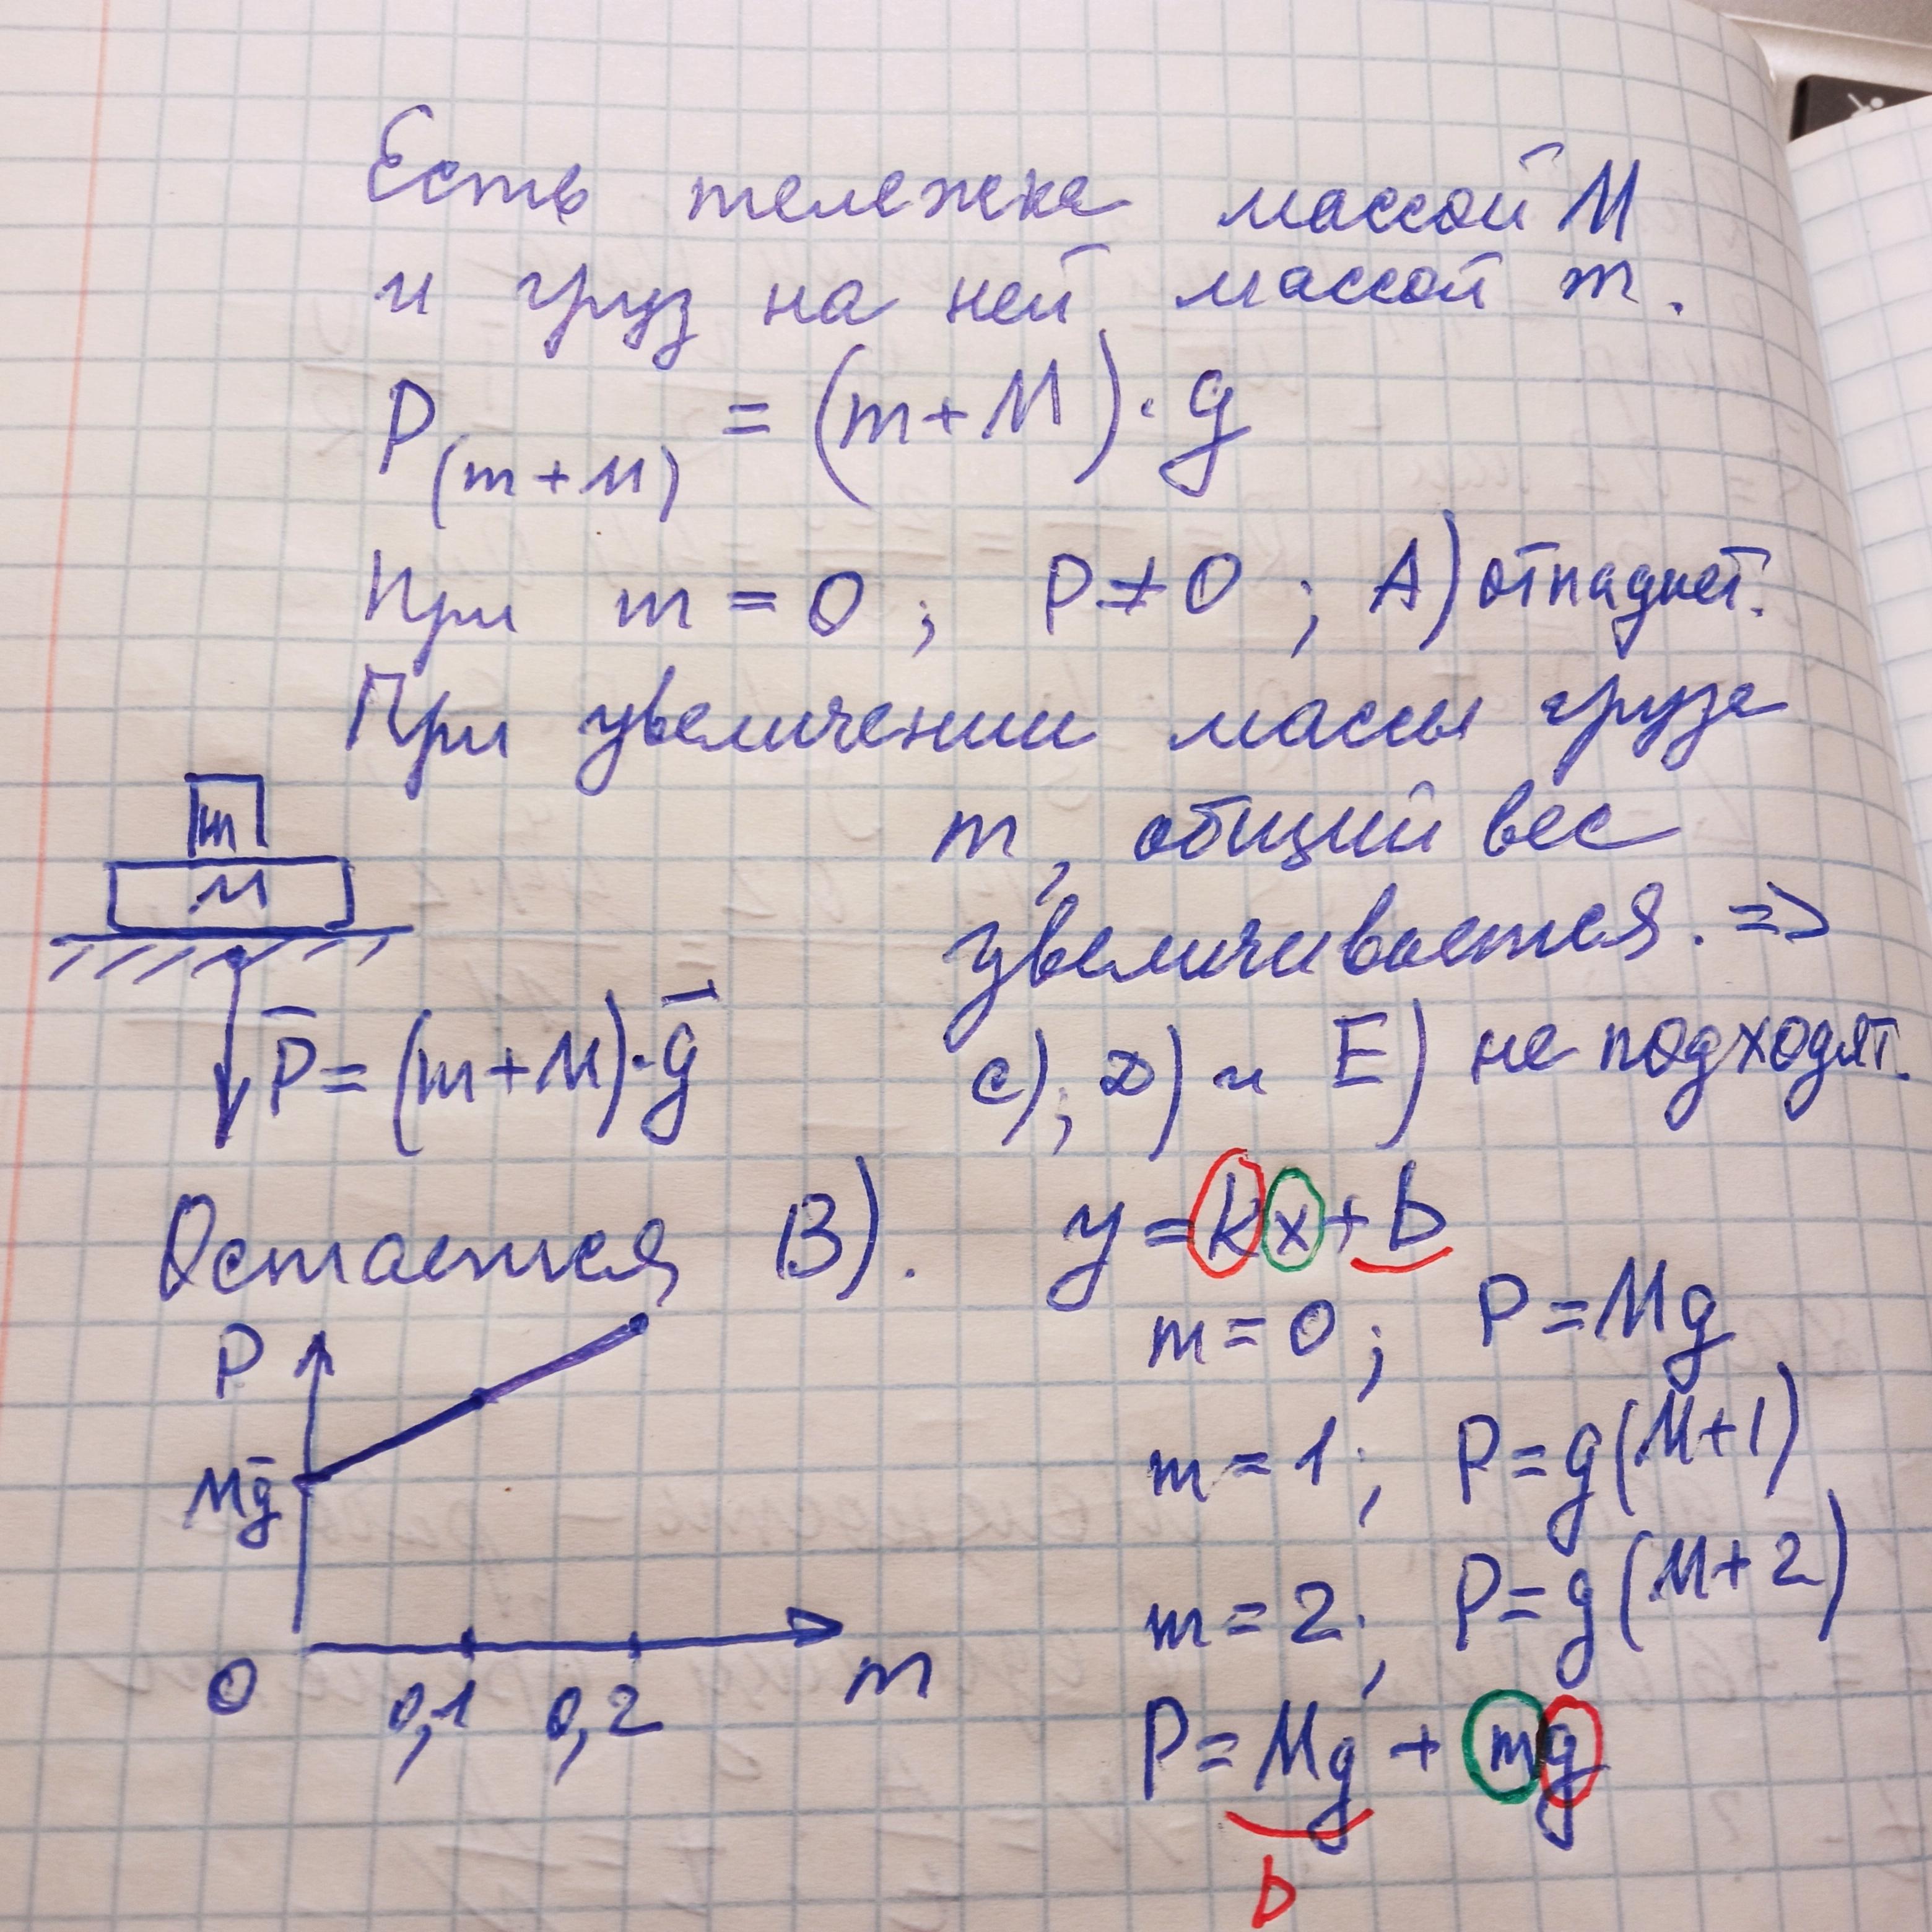 Есть тележка массой M
и груз на ней массой m.
P(m+M) = (m+M)·g
При m = 0; P≠0; A) отпадает.
При увеличении массы груза
m, общий вес
увеличивается. =>
c); D) и E) не подходят.
m
M
P̄ = (m+M)·ḡ
Остается B).
y = kx + b
m = 0; P = Mg
m = 1; P = g(M+1)
m = 2; P = g(M+2)
P = Mg + mg
b
P
Mḡ
0
0,1
0,2
m